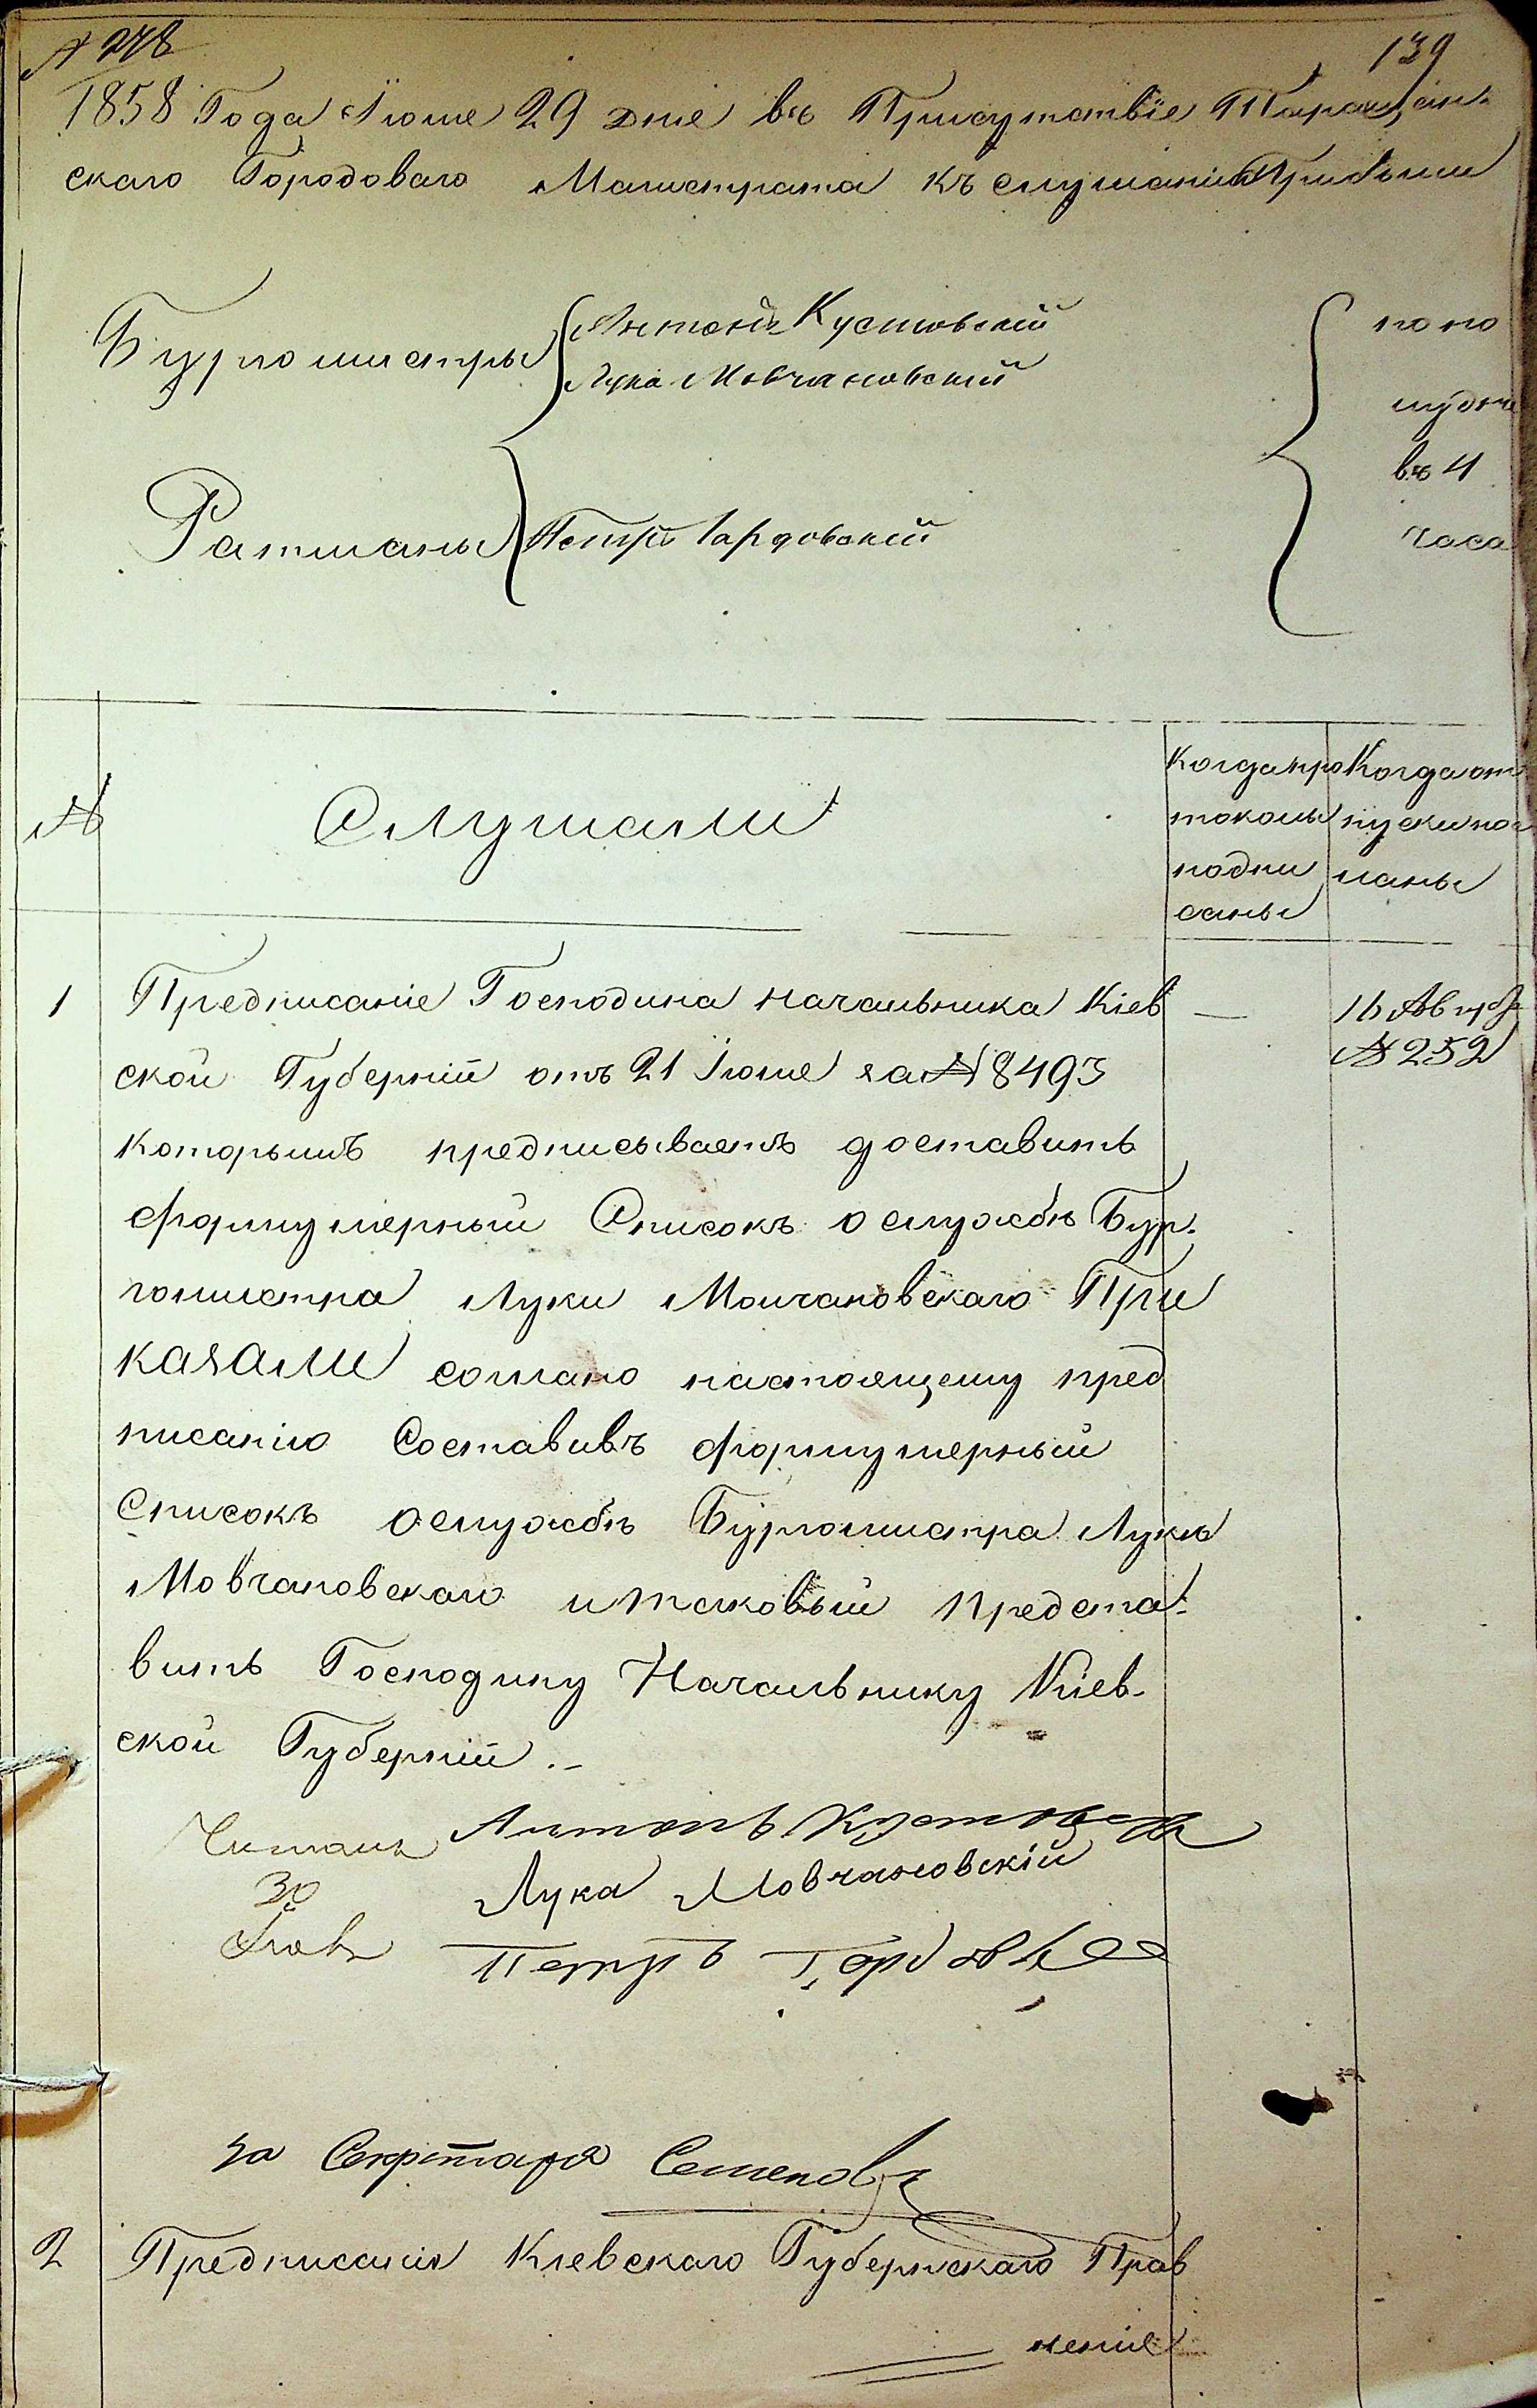 № 278
139
1858 Года Іюне 29 дне въ Присутствіе Таращан-
скаго Городоваго Магистрата къ слушанію Прибыли
Бургомистры
Антонъ Кустовскій
Лука Мовчановскій
Ратманы
Петръ Гардовскій
попо
лудне
въ 4
часа
№
Слушали
Когда про
токолы
подпи
саны
Когда от
пуски пос
ланы
1
Предписаніе Господина начальника Кіев
ской Губерніи отъ 21 Іюне за № 8493
которымъ предписываетъ доставить
формулерный Списокъ о службѣ Бур-
гомистра Луки Молчановскаго При
казали согласно настоящему пред
писанію Составивъ формулерный
Списокъ о службѣ Бургомистра Лукы
Мовчановскаго и таковый предста-
вить Господину Начальнику Кіев-
ской Губерніи.-
16 Авгу
№ 252
Читалъ
30
Антонъ Кустовск
Лука Мовчановскій
Петръ
за Секртаря Семеновъ
2
Предписанія Кіевскаго Губернскаго Прав
леніе